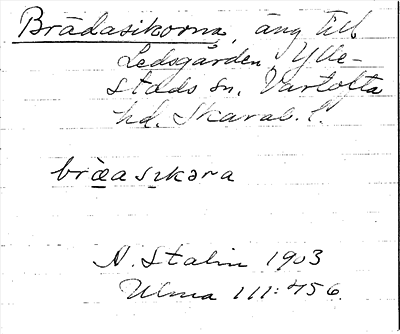 Brädasikorna, äng till
Ledsgården, Ylle-
stads sn, Vartofta
hd. Skarab. l.
bræasıkəra
N. Stalin 1903
Ulma 111:456.